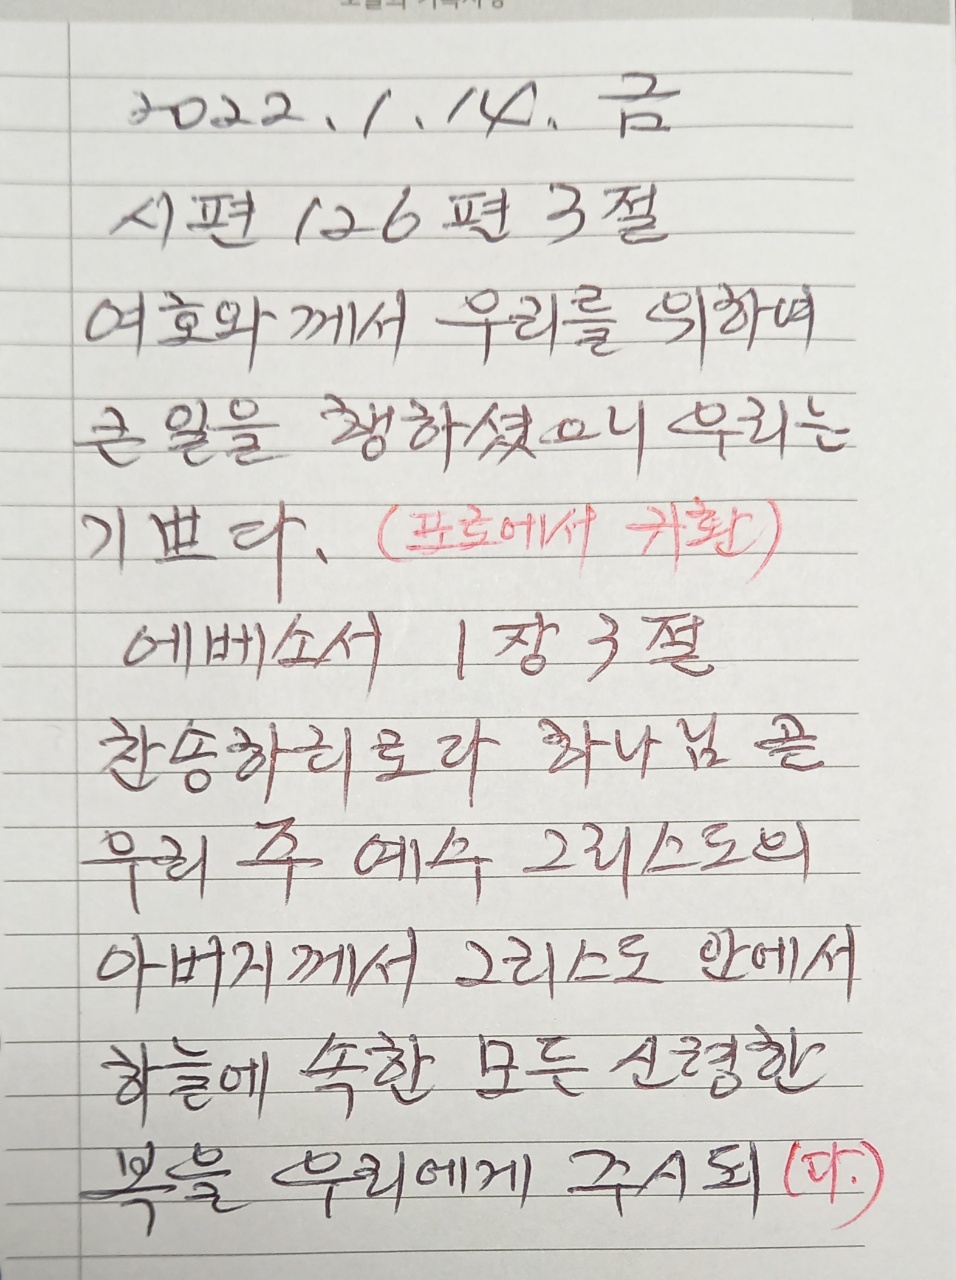 2022.1.14. 금
시편 126편 3절
여호와께서 우리를 위하여
큰 일을 행하셨으니 우리는
기쁘다. (포로에서 귀환)
에베소서 1장 3절
찬송하리로다 하나님 곧
우리 주 예수 그리스도의
아버지께서 그리스도 안에서
하늘에 속한 모든 신령한
복을 우리에게 주시되 (다.)